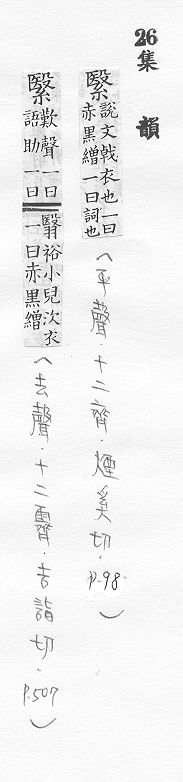 26集 韻
繄 說文戟衣也一曰
赤黑繒一曰詞也
(平聲．十二齊．煙奚切．P.98．)
繄 歎聲一曰
語助一曰
翳裕小兒次衣
一曰赤黑繒
(去聲．十二霽．吉詣切．P.507)